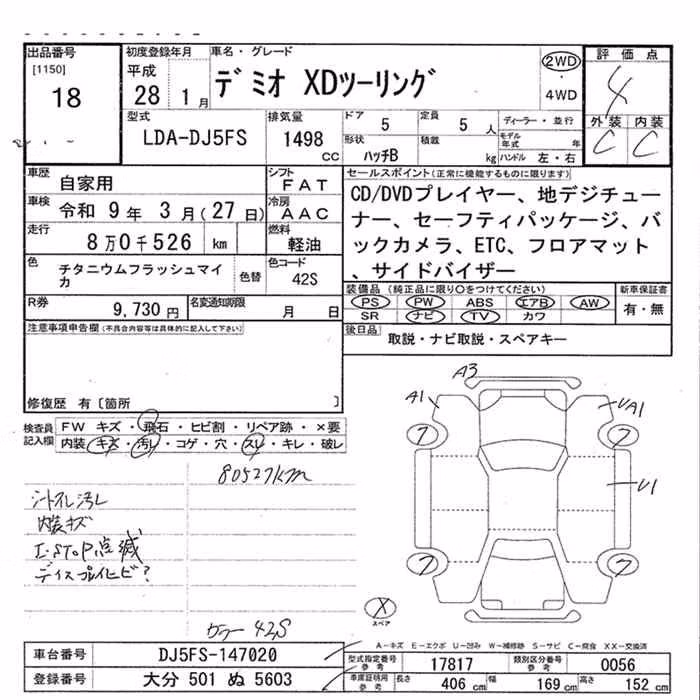 出品番号
[1150]
18
初度登録年月
平成
28 1月
車名・グレード
デミオ XDツーリング
2WD
・
4WD
評価点
4
外装 内装
C C
型式
LDA-DJ5FS
排気量
1498
CC
ドア
5
定員
5人
形状
ハッチB
積載
kg
ディーラー・並行
モデル年式 年
ハンドル 左・右
車歴
自家用
シフト
FAT
車検
令和 9年 3月(27日)
冷房
AAC
走行
8万0千526 km
燃料
軽油
色
チタニウムフラッシュマイカ
色替
色コード
42S
R券
9,730円
名変通知期限
月 日
セールスポイント(正常に機能するものに限ります)
CD/DVDプレイヤー、地デジチュー
ナー、セーフティパッケージ、バ
ックカメラ、ETC、フロアマット
、サイドバイザー
装備品(純正品に限り○をつけてください)
PS PW ABS エアB AW
SR ナビ TV カワ
新車保証書
有・無
後日品
取説・ナビ取説・スペアキー
注意事項申告欄(不具合内容等は具体的に記入して下さい)
修復歴 有〔箇所 〕
検査員
記入欄
FW キズ・飛石・ヒビ割・リペア跡・×要
内装 キズ・汚レ・コゲ・穴・スレ・キレ・破レ
80527km
シートスレ汚レ
内装キズ
I-STOP点滅
ディスプレイヒビ?
カラー 42S
A3
A1
UA1
7
7
U1
7
7
X
スペア
A-キズ E-エクボ U-凹み W-補修跡 S-サビ C-腐食 XX-交換済
車台番号
DJ5FS-147020
型式指定番号
参考
17817
類別区分番号
参考
0056
登録番号
大分 501 ぬ 5603
車庫証明用
参考
長さ
406 cm
幅
169 cm
高さ
152 cm